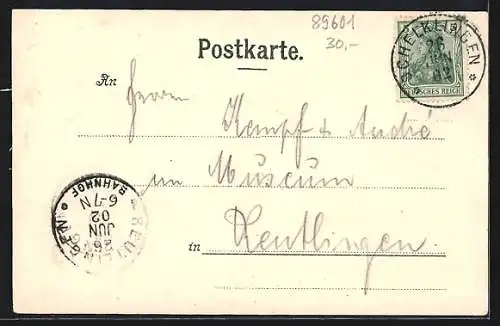 89601
30,-
Postkarte.
SCHELKLINGEN
26
JUN
02
DEUTSCHES REICH
An
Herren
Kempf & André
im Museum
in Reutlingen
REUTLINGEN
BAHNHOF
26
JUN
02
6-7N